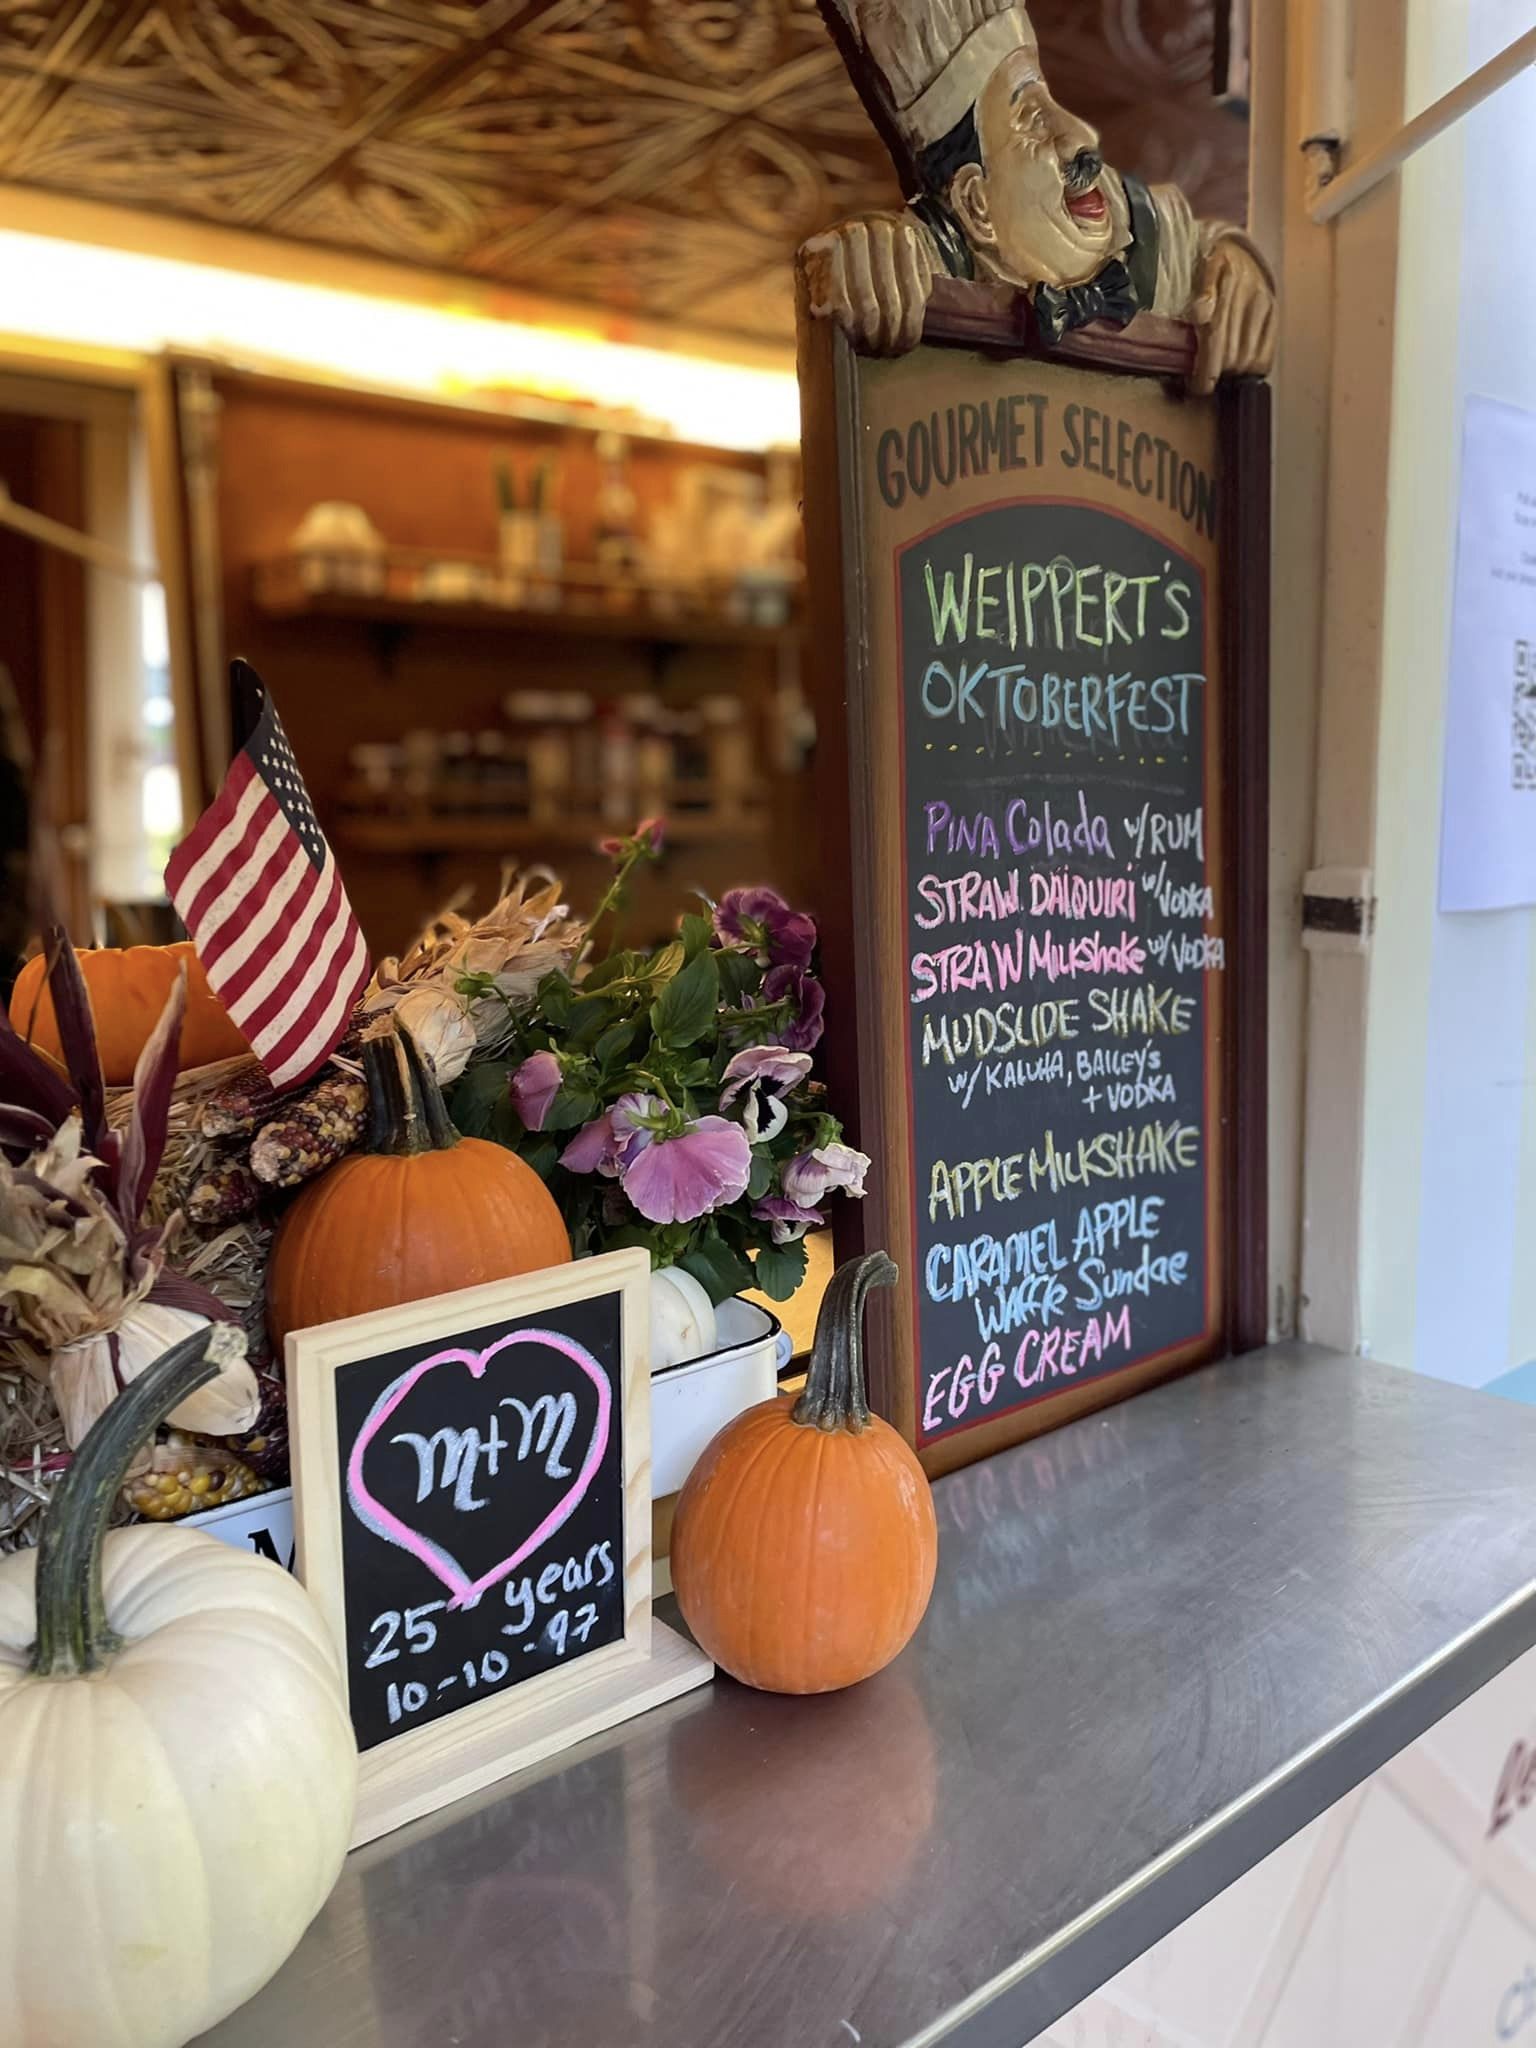 GOURMET SELECTION
WEIPPERT'S
OKTOBERFEST
PINA Colada w/ RUM
STRAW. DAIQUIRI w/ VODKA
STRAW MilkShake w/ VODKA
MUDSLIDE SHAKE
w/ KALUHA, BAILEY'S
+ VODKA
APPLE MILKSHAKE
CARAMEL APPLE
WAFFle Sundae
EGG CREAM
M+M
25 years
10-10-97